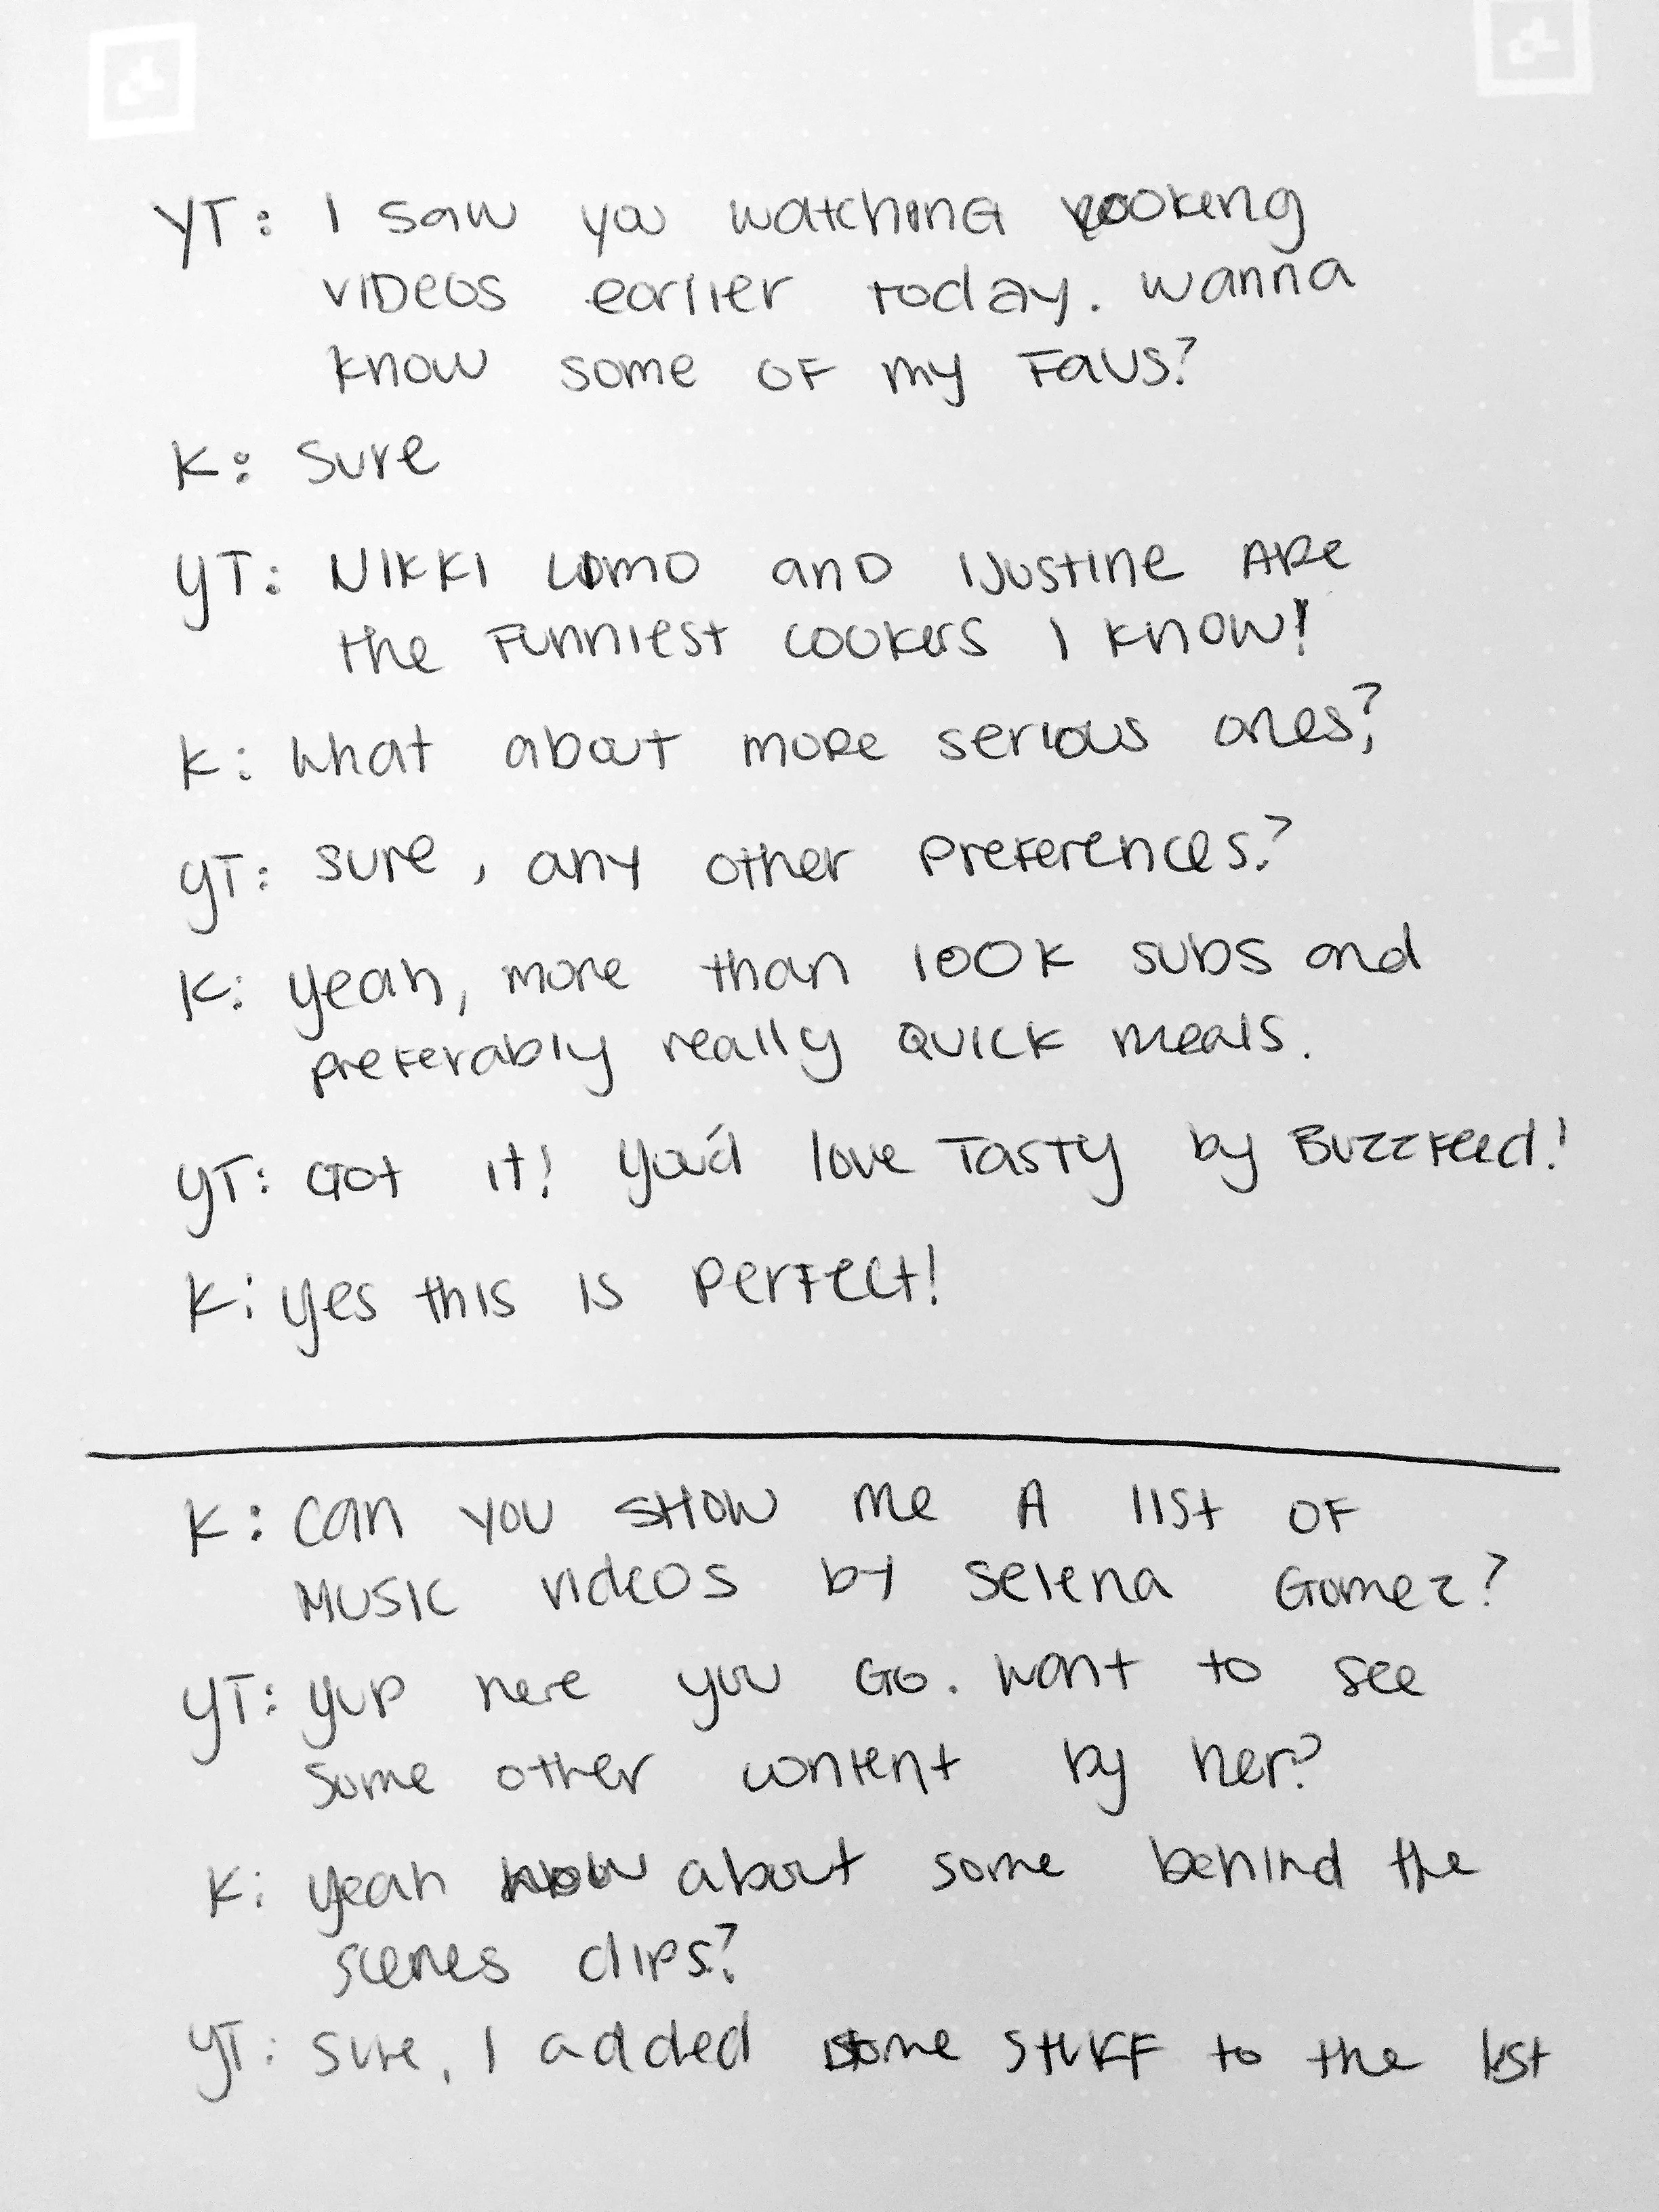 YT: I saw you watching cooking
videos earlier today. Wanna
know some of my favs?
K: Sure
YT: Nikki Limo and iJustine are
the funniest cookers I know!
K: What about more serious ones?
YT: Sure, any other preferences?
K: Yeah, more than 100K subs and
preferably really quick meals.
YT: Got it! You'd love Tasty by Buzzfeed!
K: Yes this is perfect!
K: Can you show me a list of
music videos by Selena Gomez?
YT: Yup here you go. Want to see
some other content by her?
K: Yeah how about some behind the
scenes clips?
YT: Sure, I added some stuff to the list